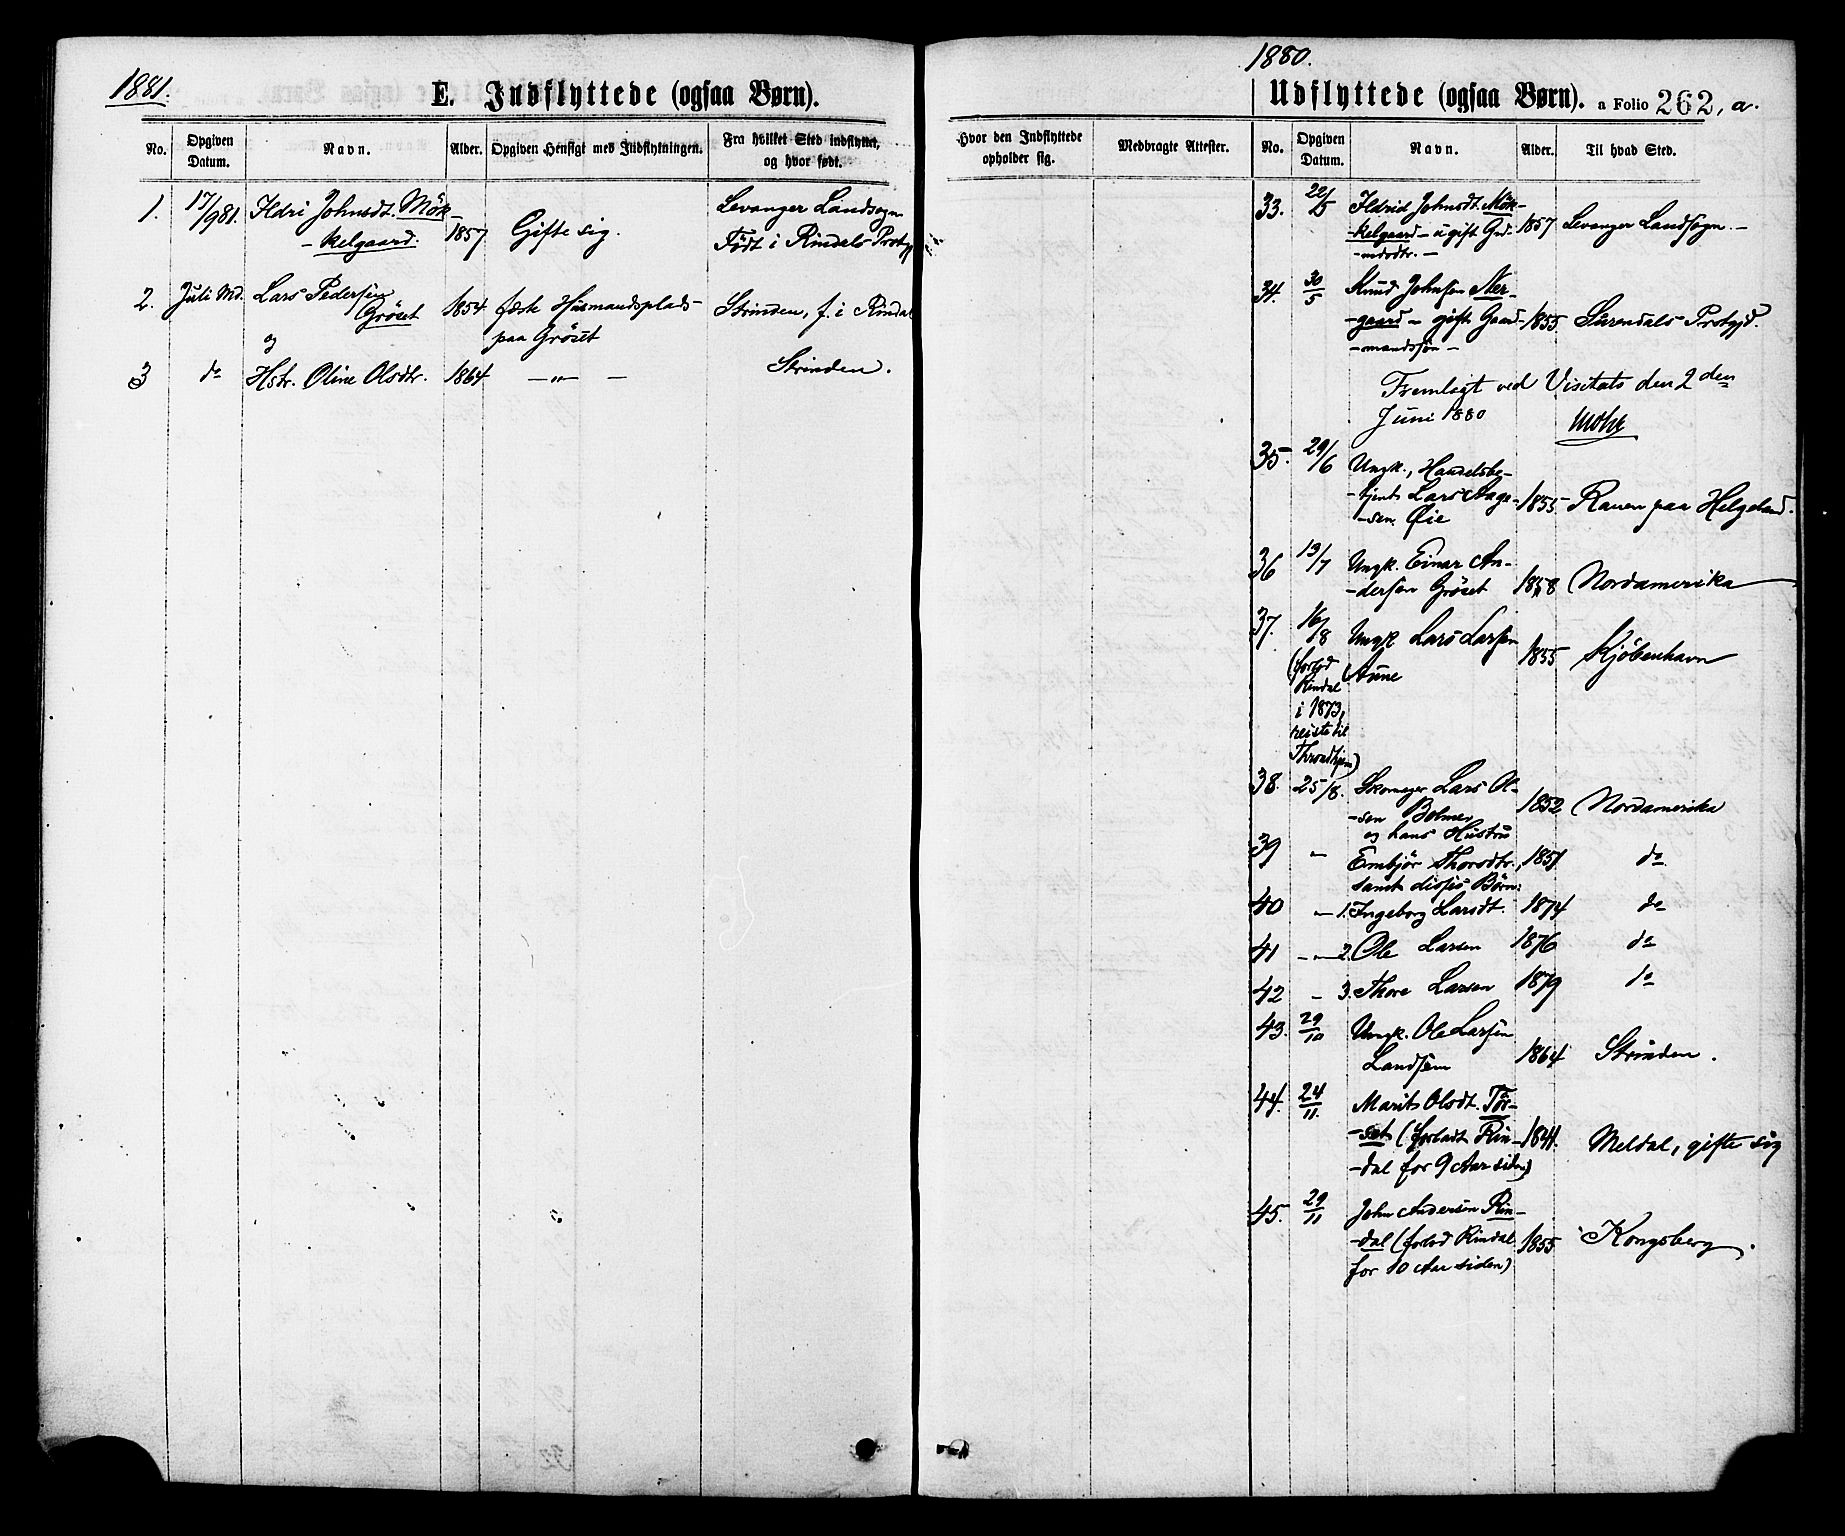 1881.
E. Indflyttede (ogsaa Børn).
No. Opgiven Datum. Navn. Alder. Opgiven Hensigt med Indflytningen. Fra hvilket Sted indflyttet, og hvor født.
1. 17/9 81. Ildri Johnsdt. Mök- Levanger Landsogn
- kelgaard. 1857 Gifte sig. Født i Rindals Prstgj
2. Juli Md. Lars Pedersen
Gröset 1854 fæste Husmandsplads Strinden, f. i Rindal
og paa Gröset
3 do Hstr. Oline Olsdtr. 1864 - " - Strinden.
1880.
Udflyttede (ogsaa Børn). a Folio 262, a.
Hvor den Indflyttede opholder sig. Medbragte Attester. No. Opgiven Datum. Navn. Alder. Til hvad Sted.
33. 22/5 Ildrid Johnsdt. Mök-
-kelgaard - ugift Grd- 1857 Levanger Landsogn. -
-mdsdtr. -
34. 30/5 Knud Johnsen Ner-
-gaard - gift Gaard- 1855 Surendals Prstgjd.
-mandssön -
Fremlagt ved Visitats den 2den
Juni 1880
35. 29/6 Ungk., Handelsbe-
-tjent Lars Aage- 1855 Ranen paa Helgeland.
-sen Øie
36 13/7 Ungk. Einar An-
-dersen Gröset 1858 Nordamerika
37. 16/8 Ungk Lars Larsen
(forlod Aune 1855 Kjöbenhavn
Rindal
i 1873,
reiste til
Throndhjem)
38. 25/8. Skomager Lars Ol-
-sen Bolme, 1852 Nordamerika
og hans Hustru
39 " Embjör Thorsdtr., 1851 do
samt disses Börn:
40 - " 1. Ingeborg Larsdt. 1874 do
41 - " - 2. Ole Larsen 1876 do
42 - 3. Thore Larsen 1879 do
43. 29/10 Ungk. Ole Larsen
Landsem 1864 Strinden.
44. 24/11. Marit Olsdt. Tör-
-set (forladt Rin- 1841. Meldal, gifte sig
-dal for 9 Aar siden)
45. 29/11 John Andersen Rin-
-dal (forlod Rindal 1855 Kongsberg.
for 10 Aar siden)